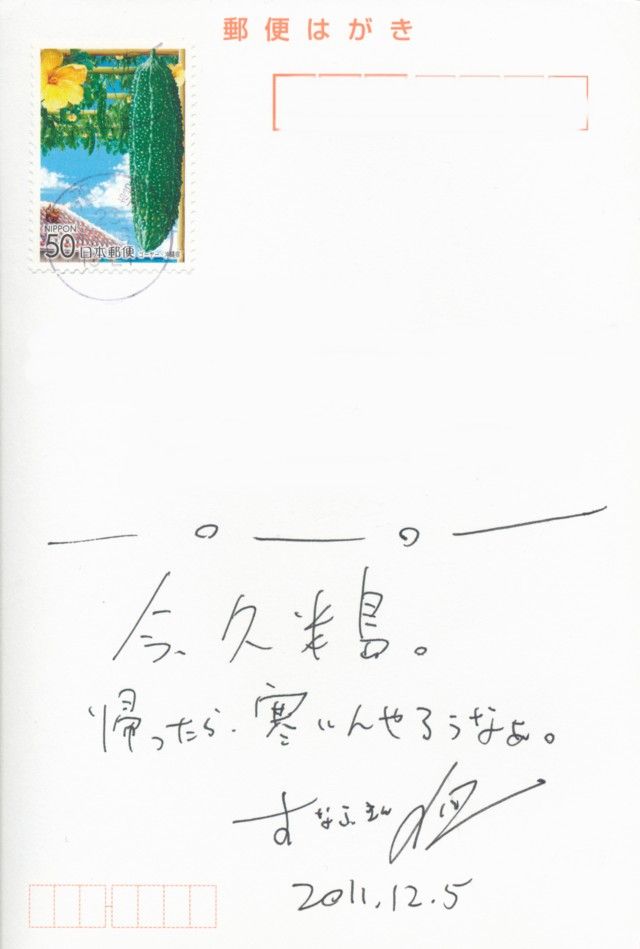 郵便はがき
NIPPON
50 日本郵便
今、久米島。
帰ったら、寒いんやろうなぁ。
すなふきん
2011.12.5